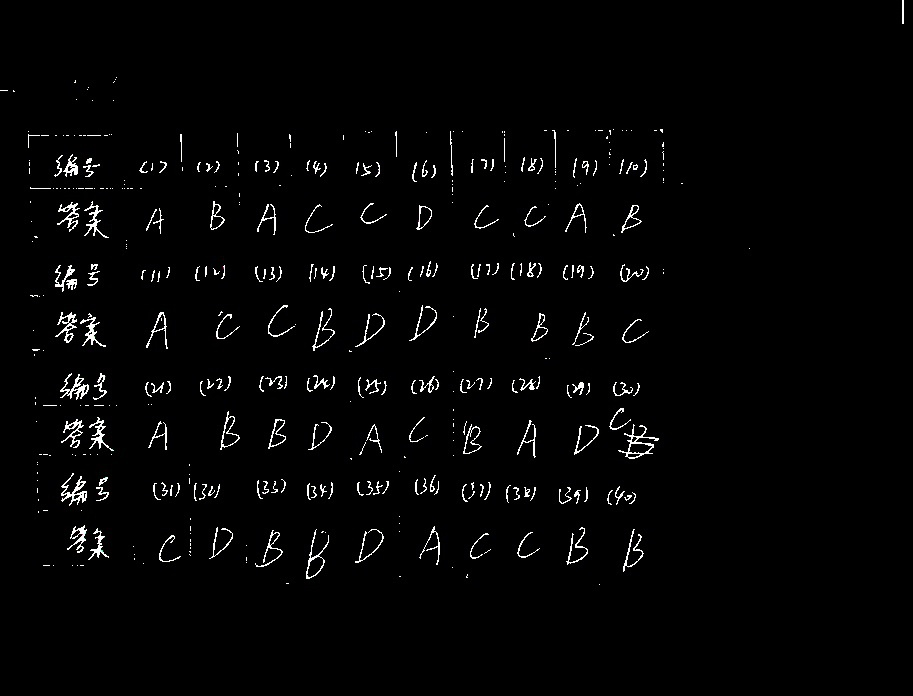 编号 (1) (2) (3) (4) (5) (6) (7) (8) (9) (10)
答案 A B A C C D C C A B
编号 (11) (12) (13) (14) (15) (16) (17) (18) (19) (20)
答案 A C C B D D B B B C
编号 (21) (22) (23) (24) (25) (26) (27) (28) (29) (30)
答案 A B B D A C B A D C
编号 (31) (32) (33) (34) (35) (36) (37) (38) (39) (40)
答案 C D B B D A C C B B